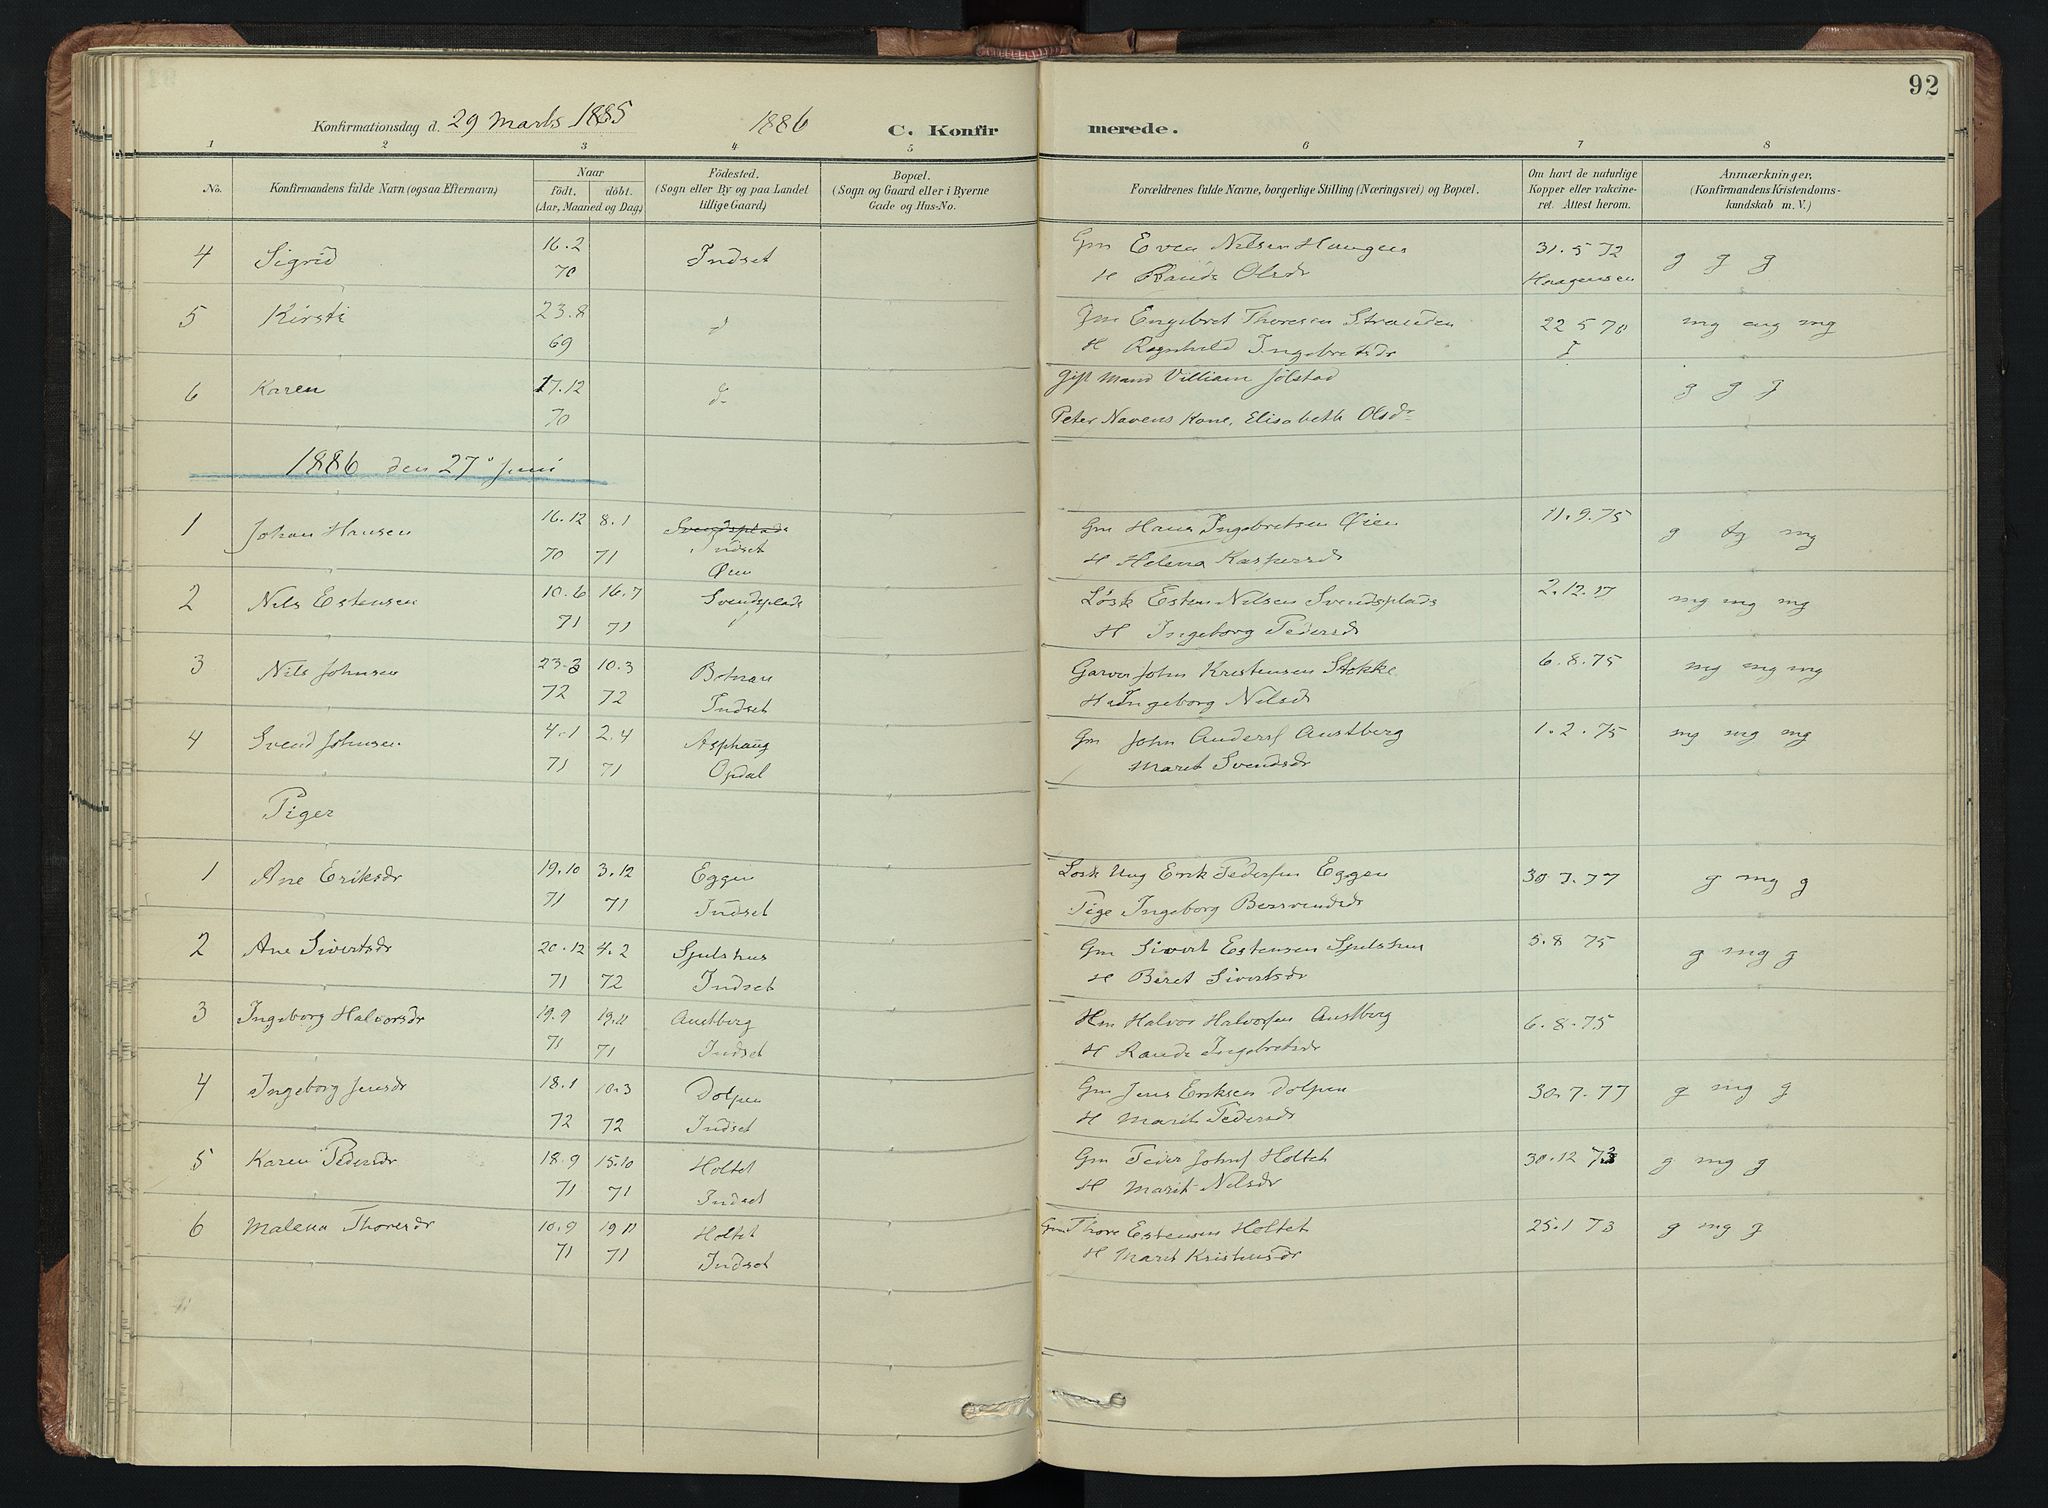 92
Konfirmationsdag d. 29 Marts 1885 1886 C. Konfirmerede.
1 2 3 4 5 6 7 8
No. Konfirmandens fulde Navn (ogsaa Efternavn) Naar Født. døbt. (Aar, Maaned og Dag.) Fødested. (Sogn eller By og paa Landet tillige Gaard) Bopæl. (Sogn og Gaard eller i Byerne Gade og Hus-No. Forældrenes fulde Navne, borgerlige Stilling (Næringsvei) og Bopæl. Om havt de naturlige Kopper eller vakcineret. Attest herom. Anmærkninger, (Konfirmandens Kristendomskundskab m. V.)
4 Sigrid 16.2 Indset Gm Even Nilsen Haugen 31.5 72 g g g
70 H Randi Olsdr Haagensen
5 Kirsti 23.8 Gm Engebret Thoresen Stranden 22 5 70 mg mg mg
69 H Ragnhild Ingebretsdr
6 Karen 17.12 d- Gift Mand Villiam Jølstad g g g
70 Peter Navens Kone, Elisabeth Olsdr
1886 den 27 Juni
1 Johan Hansen 16.12 8.1 Svendsplads Gm Hans Ingebretsen Øien 11.9.75 g tg mg
70 71 Indset Øien H Helena Kaspersd
2 Nils Estensen 10.6 16.7 Svendsplads Løsk Esten Nilsen Svendsplads 2.12.17 mg mg mg
71 71 H Ingeborg Pedersd
3 Nils Johnsen 23.2 10.3 Garver John Kristensen Stokke 6.8.75 mg mg mg
72 72 Indset H Ingeborg Nilsd
4 Svend Johnsen 4.1 2.4 Asphaug Gm John Anders Austberg 1.2.75 mg mg mg
71 71 Opdal Marit Svendsdr
Piger
1 Ane Eriksdr 19.10 3.12 Eggen Løsk Ung Erik Pedersen Eggen 30.7.77 g mg g
71 71 Indset Pige Ingeborg Bersvendsd
2 Ane Sivertsdr 20.12 4.2 Sjulshus Gm Sivert Estensen Sjulshus 5.8 75 g mg g
71 72 Indset H Beret Sivertsdr
3 Ingeborg Halvorsdr 19.9 19.11 Austberg Hm Halvor Halvorsen Austberg 6.8.75
71 71 Indset H Randi Ingebretsdr
4 Ingeborg Jensdr 18.1 10.3 Dolpen Gm Jens Eriksen Dolpen 30.7.77 g mg g
72 72 Indset H Marit Pedersd
5 Karen Pedersdr 18.9 15.10 Holtet Gm Peder Johns Holtet 30.12 73 g mg g
71 71 Indset H Marit Nilsdr
6 Malena Thoresdr 10.9 19 11 Holtet Gm Thore Estensen Holtet 25.1 73 g mg g
71 71 Indset H Marit Kristensdr